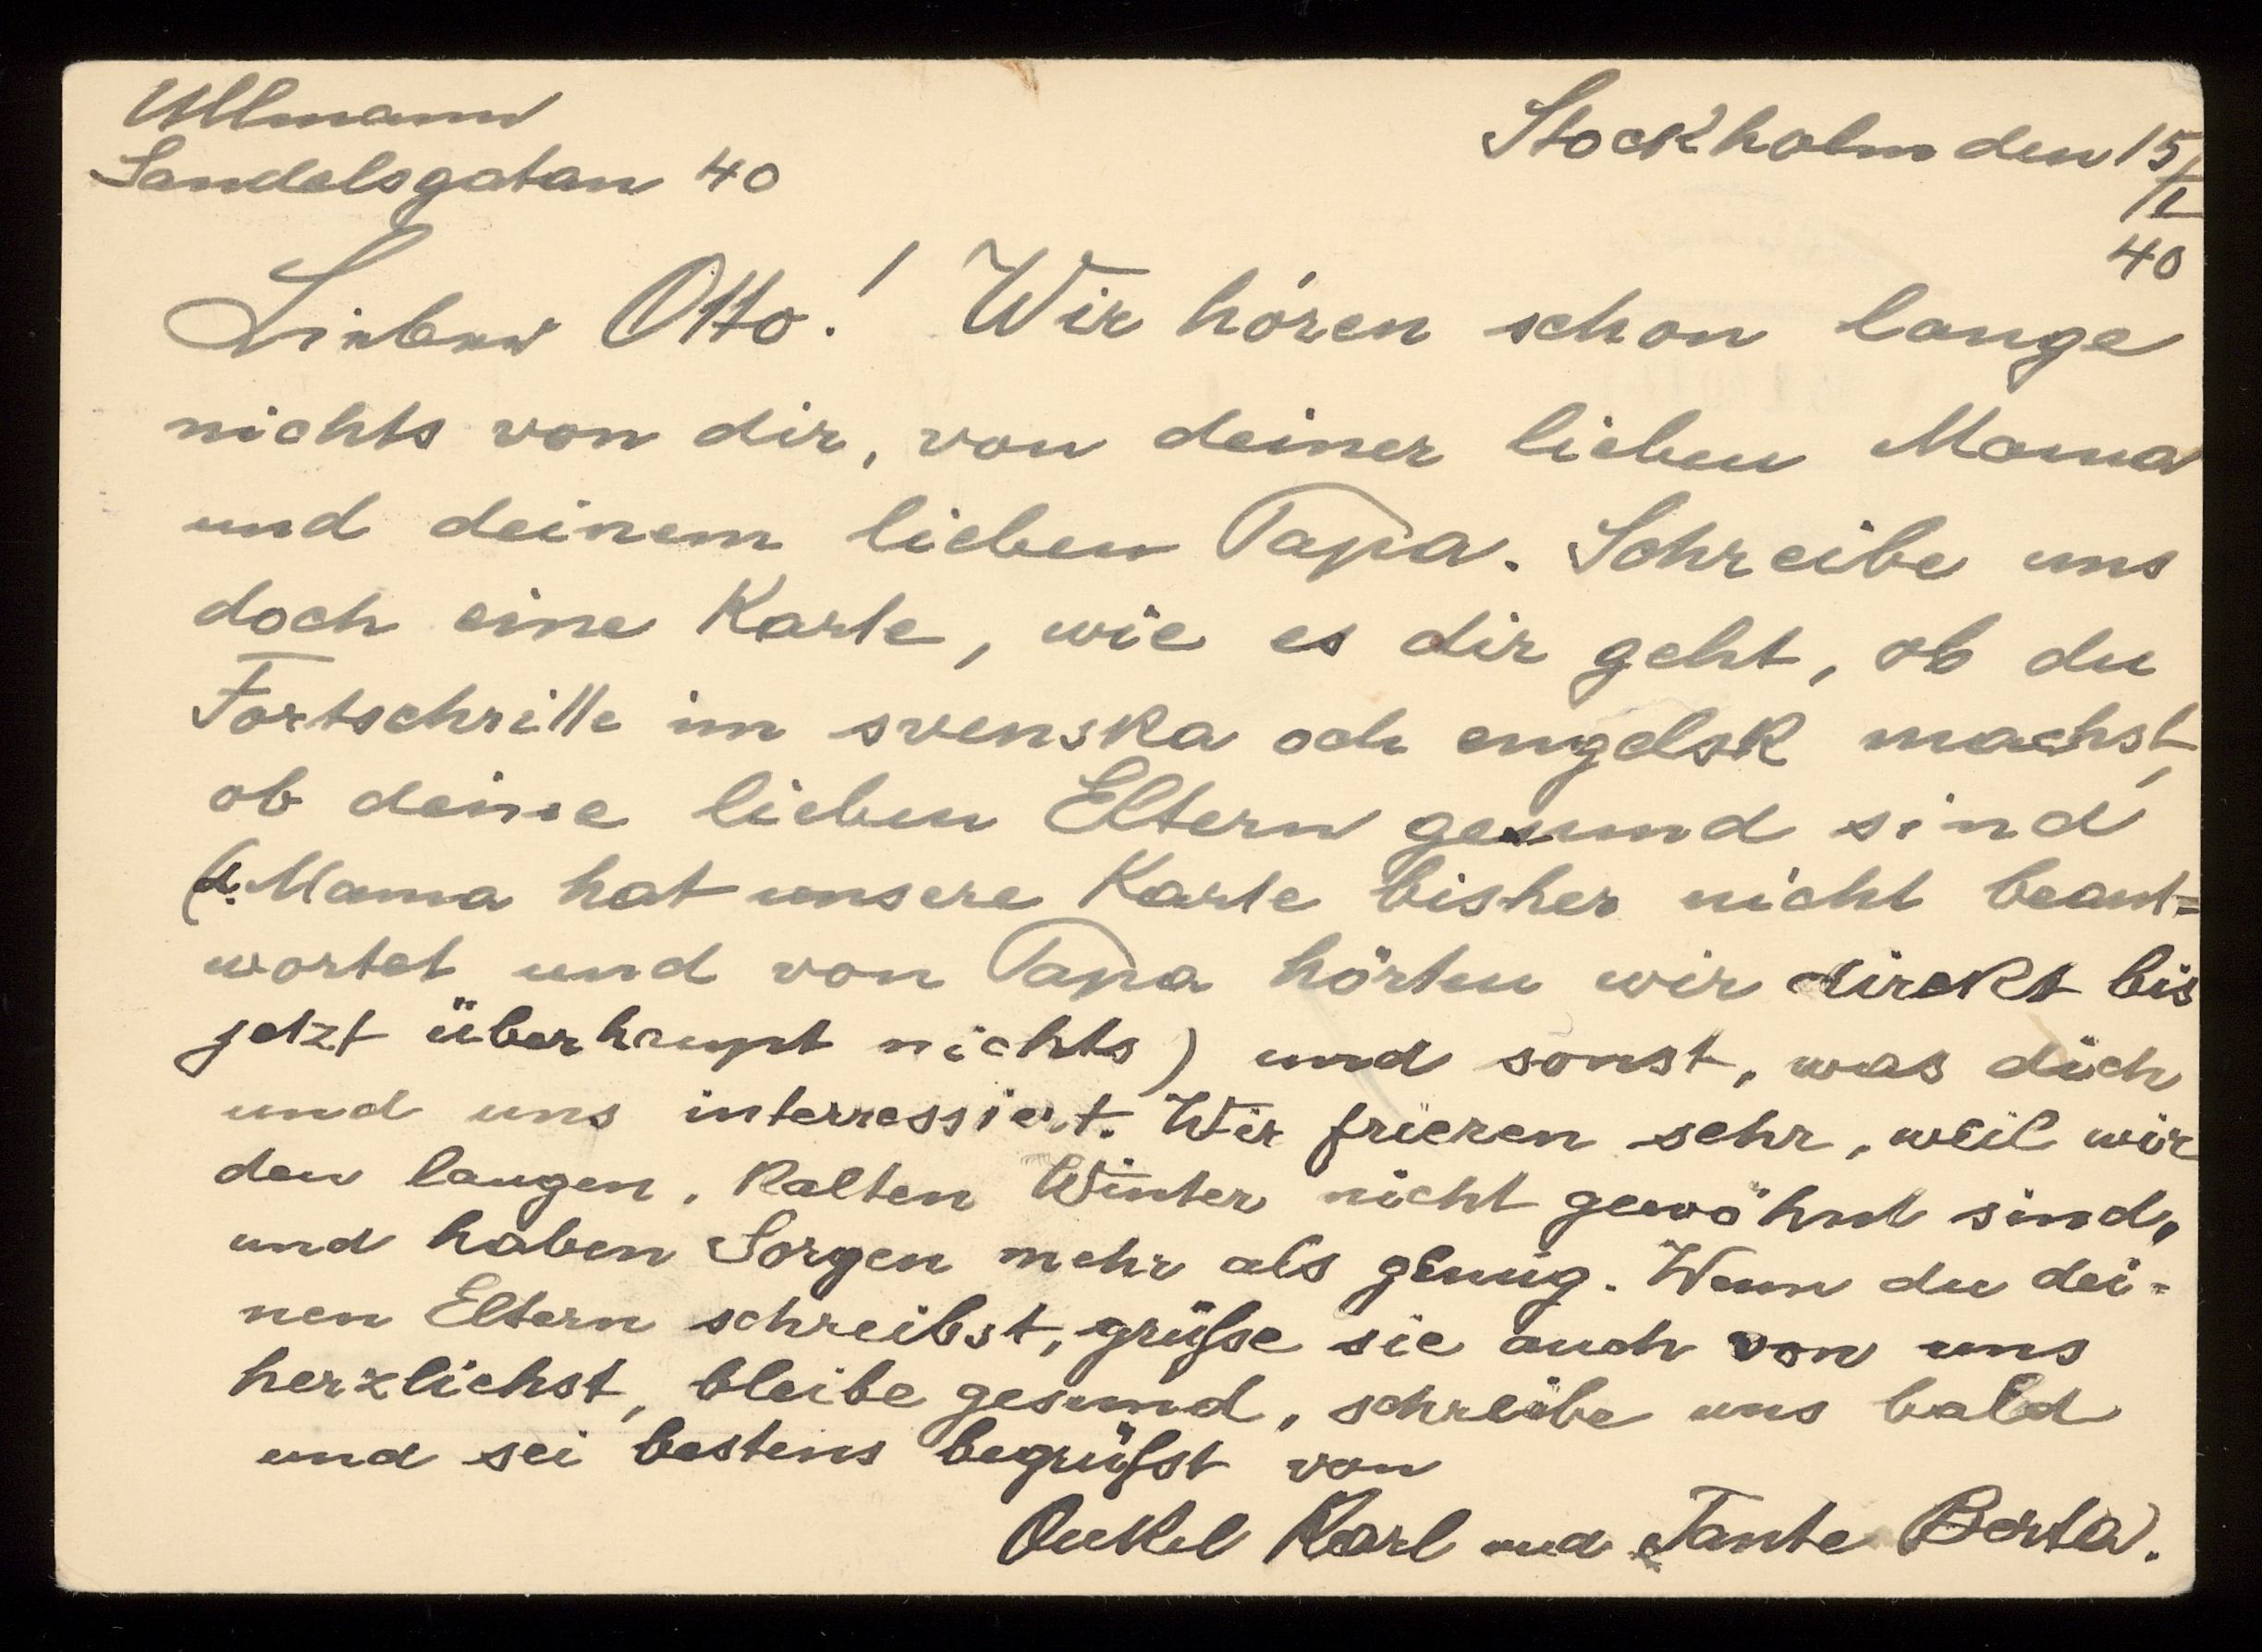 Ullmann
Sandelsgatan 40
Stockholm den 15/I
40
Lieber Otto! Wir hören schon lange
nichts von dir, von deiner lieben Mama
und deinem lieben Papa. Schreibe uns
doch eine Karte, wie es dir geht, ob du
Fortschritte im svenska och engelsk machst,
ob deine lieben Eltern gesund sind
(d. Mama hat unsere Karte bisher nicht beant=
wortet und von Papa hörten wir direkt bis
jetzt überhaupt nichts) und sonst, was dich
und uns interressiert. Wir frieren sehr, weil wir
den langen, kalten Winter nicht gewöhnt sind,
und haben Sorgen mehr als genug. Wenn du dei=
nen Eltern schreibst, grüße sie auch von uns
herzlichst, bleibe gesund, schreibe uns bald
und sei bestens begrüßt von
Onkel Karl und Tante Berta.